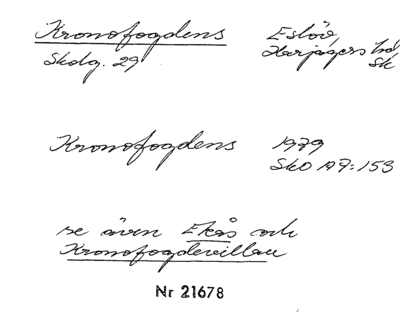 Kronofogdens Eslöv,
Skolg. 29 Harjagers hd
Sk
Kronofogdens 1979
SkO A7:153
se även Ekås och
Kronofogdevillan
Nr 21678